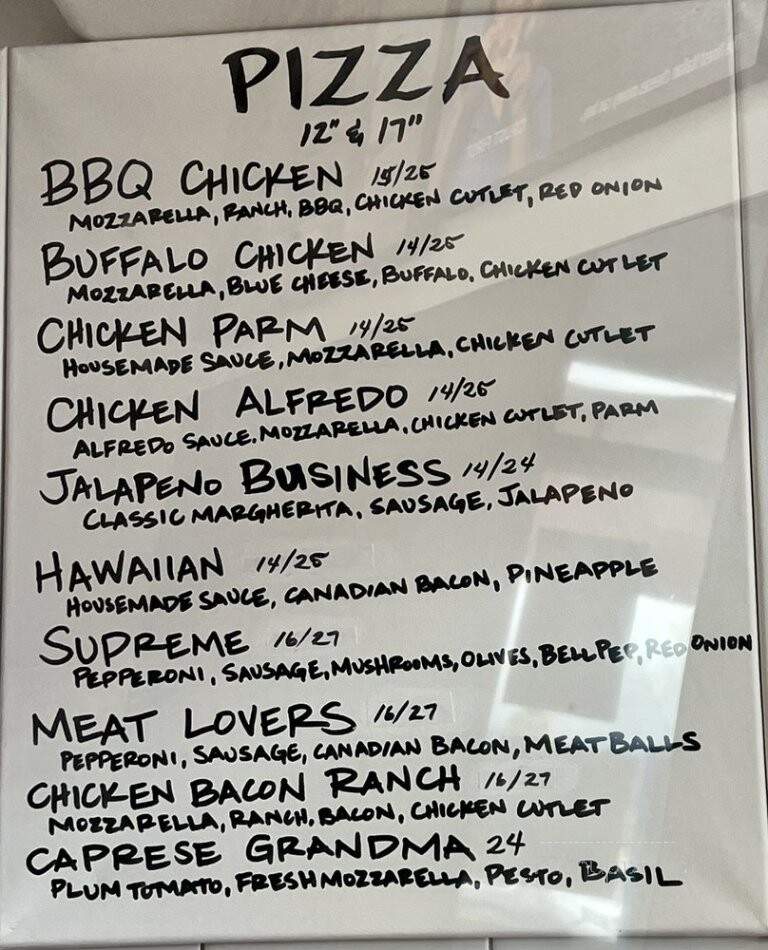 PIZZA
12" & 17"
BBQ CHICKEN 15/25
MOZZARELLA, RANCH, BBQ, CHICKEN CUTLET, RED ONION
BUFFALO CHICKEN 14/25
MOZZARELLA, BLUE CHEESE, BUFFALO, CHICKEN CUTLET
CHICKEN PARM 14/25
HOUSEMADE SAUCE, MOZZARELLA, CHICKEN CUTLET
CHICKEN ALFREDO 14/25
ALFREDO SAUCE, MOZZARELLA, CHICKEN CUTLET, PARM
JALAPENO BUSINESS 14/24
CLASSIC MARGHERITA, SAUSAGE, JALAPENO
HAWAIIAN 14/25
HOUSEMADE SAUCE, CANADIAN BACON, PINEAPPLE
SUPREME 16/27
PEPPERONI, SAUSAGE, MUSHROOMS, OLIVES, BELL PEP, RED ONION
MEAT LOVERS 16/27
PEPPERONI, SAUSAGE, CANADIAN BACON, MEATBALLS
CHICKEN BACON RANCH 16/27
MOZZARELLA, RANCH, BACON, CHICKEN CUTLET
CAPRESE GRANDMA 24
PLUM TOMATO, FRESH MOZZARELLA, PESTO, BASIL